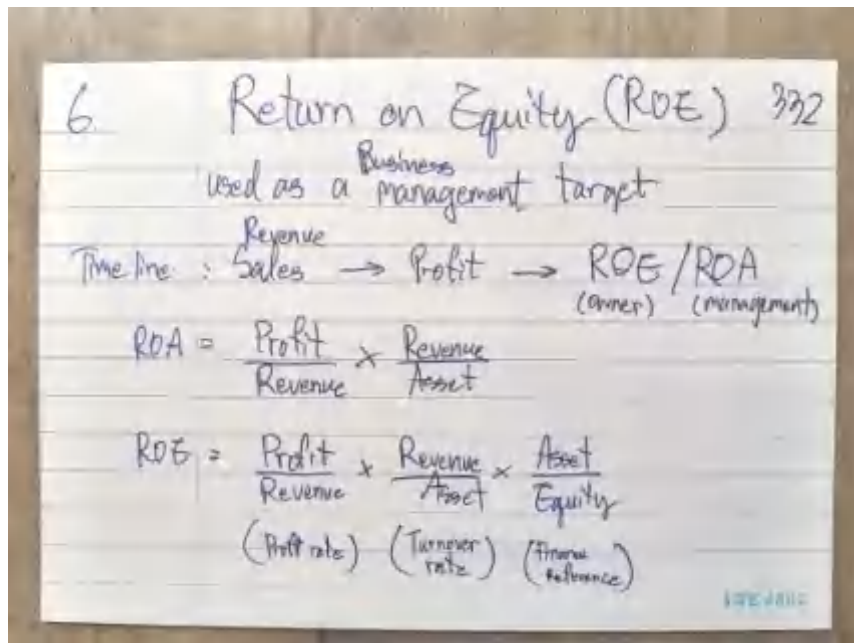 6 Return on Equity (ROE) 332
Business
used as a management target
Revenue
Time line : Sales → Profit → ROE / ROA
(owner) (management)
ROA = Profit × Revenue
Revenue Asset
ROE = Profit × Revenue × Asset
Revenue Asset Equity
(Profit rate) (Turnover rate) (Finance